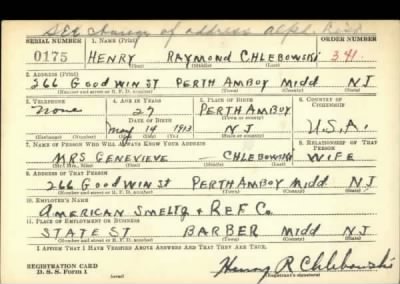 See change of address alph. Card
SERIAL NUMBER 1. NAME (Print) ORDER NUMBER
0175 HENRY RAYMOND CHLEBOWSKI 341
(First) (Middle) (Last)
2. ADDRESS (Print)
266 GOODWIN ST PERTH AMBOY MIDD NJ
(Number and street or R. F. D. number) (Town) (County) (State)
3. TELEPHONE 4. AGE IN YEARS 5. PLACE OF BIRTH 6. COUNTRY OF CITIZENSHIP
None 27 PERTH AMBOY
DATE OF BIRTH (Town or county)
May 14 1913 NJ U.S.A.
(Exchange) (Number) (Mo.) (Day) (Yr.) (State or country)
7. NAME OF PERSON WHO WILL ALWAYS KNOW YOUR ADDRESS 8. RELATIONSHIP OF THAT PERSON
MRS GENEVIEVE — CHLEBOWSKI WIFE
(Mr., Mrs., Miss) (First) (Middle) (Last)
9. ADDRESS OF THAT PERSON
266 GOODWIN ST PERTH AMBOY MIDD NJ
(Number and street or R. F. D. number) (Town) (County) (State)
10. EMPLOYER'S NAME
AMERICAN SMELTG + REF CO.
11. PLACE OF EMPLOYMENT OR BUSINESS
STATE ST BARBER MIDD NJ
(Number and street or R. F. D. number) (Town) (County) (State)
I AFFIRM THAT I HAVE VERIFIED ABOVE ANSWERS AND THAT THEY ARE TRUE.
REGISTRATION CARD
D. S. S. Form 1 (over) Henry R Chlebowski
(Registrant's signature)